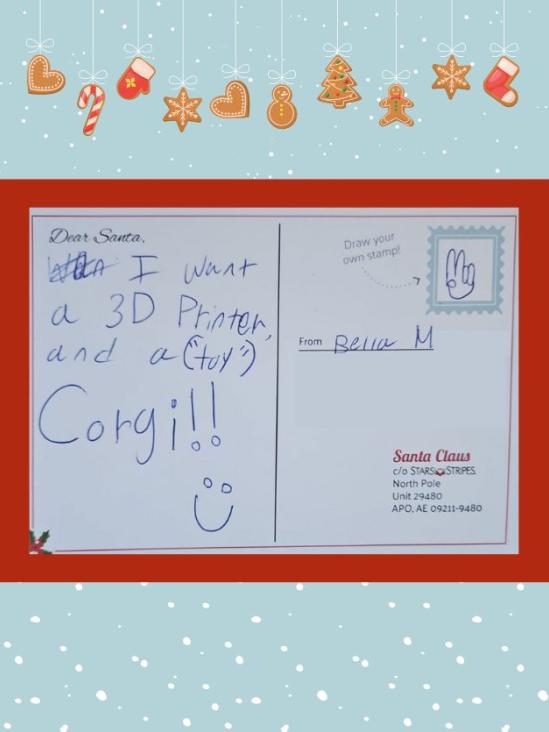 Dear Santa,
I want
a 3D Printer,
and a ("toy")
Corgi!!
Draw your
own stamp!
From Bella M
Santa Claus
c/o STARS STRIPES.
North Pole
Unit 29480
APO, AE 09211-9480